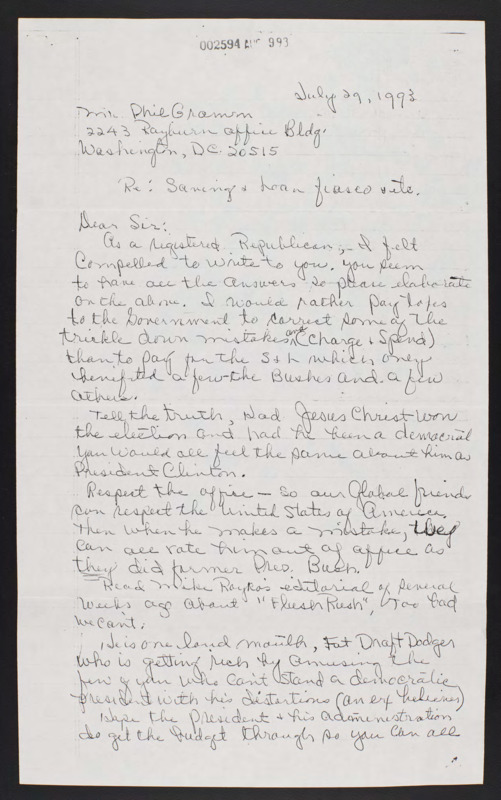 002594 AUG 993
July 29, 1993
Mr. Phil Gramm
2243 Rayburn Office Bldg.
Washington, D.C. 20515
Re: Saving & Loan fiasco & etc.
Dear Sir:
As a registered Republican, I felt
compelled to write to you. You seem
to have all the answers so please elaborate
on the above. I would rather pay taxes
to the Government to correct some of the
trickle down mistakes and (Charge & Spend)
than to pay for the S & L which only
benefited a few - the Bushes and a few
others.
Tell the truth, had Jesus Christ won
the election and had he been a democrat
you would all feel the same about him as
President Clinton.
Respect the office — so our Global friends
can respect the United States of America.
Then when he makes a mistake, they
can all vote him out of office as
they did former Pres. Bush.
Read Mike Royko's editorial of several
weeks ago about "Flush Rush", Too bad
we can't.
He is one loud mouth, Fat Draft Dodger
who is getting rich by amusing the
few of you who can't stand a democratic
president with his distortions (an ex believer)
Hope the President & his administration
do get the budget through so you can all